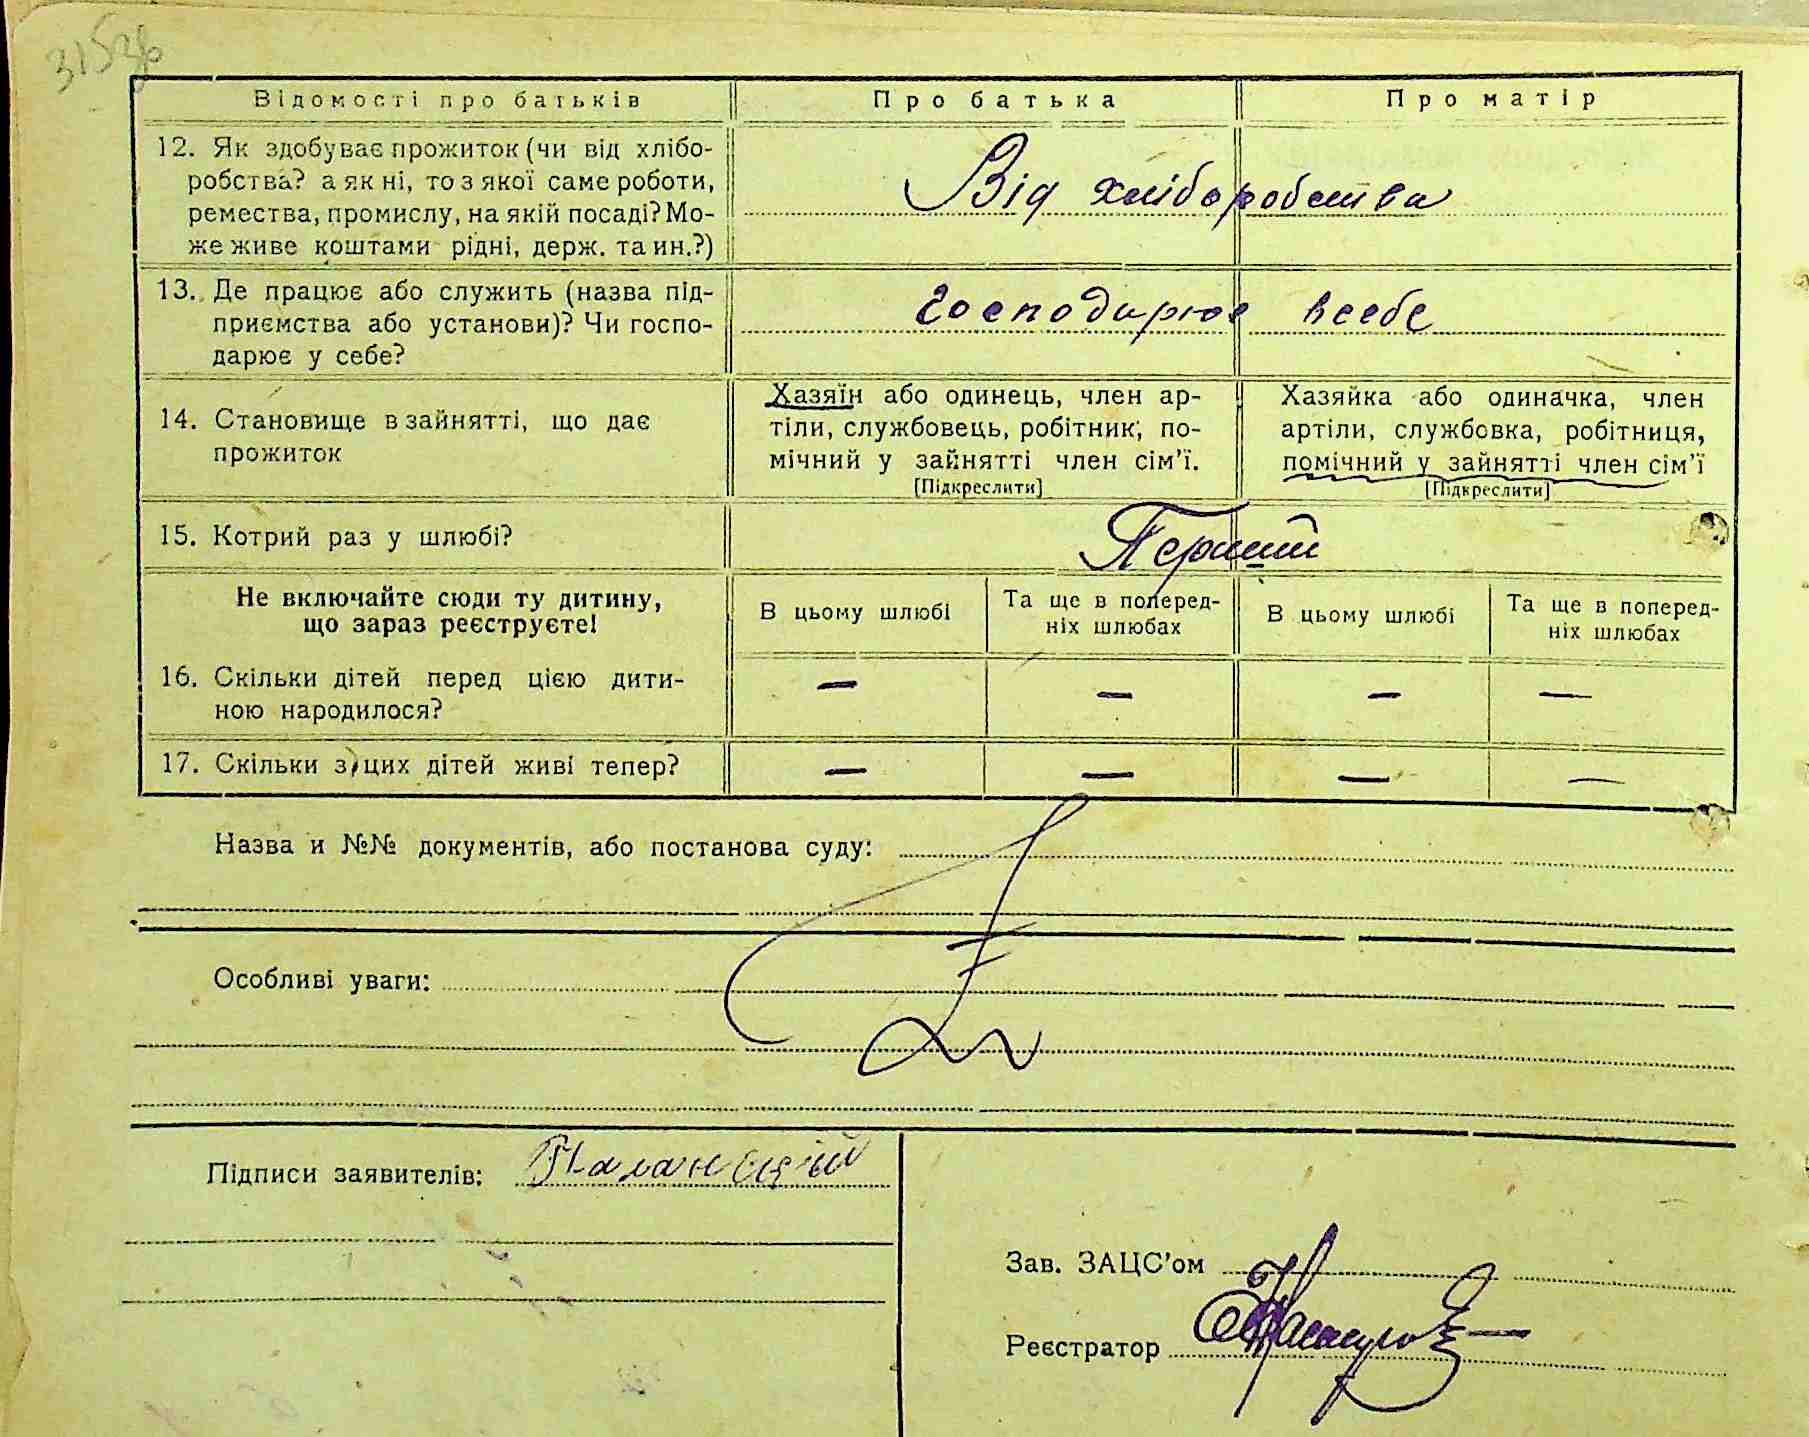 315зв
Відомості про батьків
Про батька
Про матір
12. Як здобуває прожиток (чи від хлібо-
робства? а як ні, то з якої саме роботи,
ремества, промислу, на якій посаді? Мо-
же живе коштами рідні, держ. та ин.?)
Від хліборобства
13. Де працює або служить (назва під-
приємства або установи)? Чи госпо-
дарює у себе?
Господарює всебе
14. Становище в зайнятті, що дає
прожиток
Хазяїн або одинець, член ар-
тіли, службовець, робітник, по-
мічний у зайнятті член сім'ї.
[Підкреслити]
Хазяйка або одиначка, член
артіли, службовка, робітниця,
помічний у зайнятті член сім'ї
[Підкреслити]
15. Котрий раз у шлюбі?
Перший
Не включайте сюди ту дитину,
що зараз реєструєте!
В цьому шлюбі
Та ще в поперед-
ніх шлюбах
В цьому шлюбі
Та ще в поперед-
ніх шлюбах
16. Скільки дітей перед цією дити-
ною народилося?
— — — —
17. Скільки з цих дітей живі тепер?
— — — —
Назва и №№ документів, або постанова суду:
Особливі уваги:
Підписи заявителів:
Зав. ЗАЦС'ом
Реєстратор